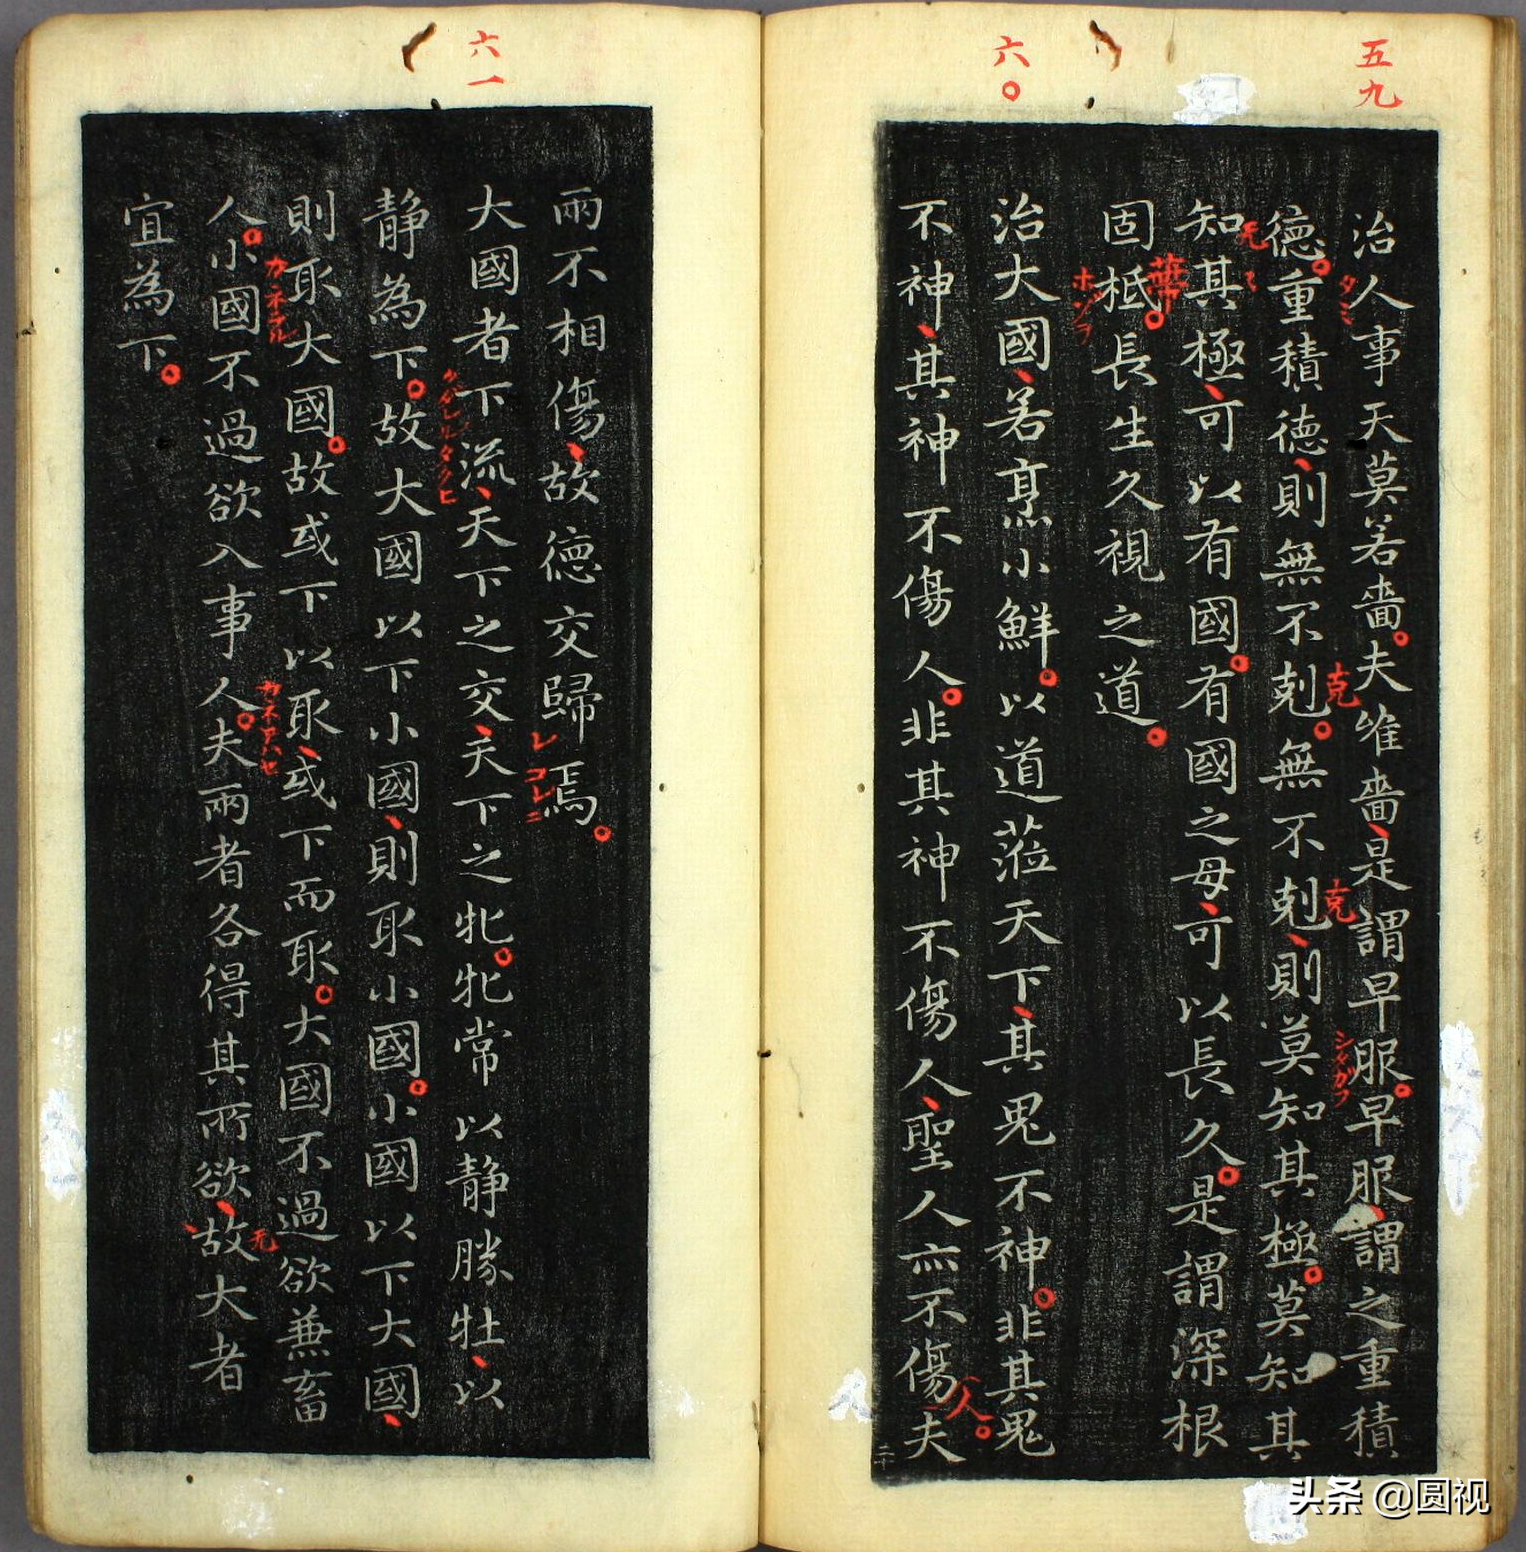 五九
治人事天莫若嗇。夫唯嗇、是謂早服。早服、謂之重積
タミ
克
克
シタガフ
德。重積德、則無不剋。無不剋、則莫知其極。莫知其
无
知其極、可以有國。有國之母、可以長久。是謂深根
固柢。長生久視之道。
ホゾヲ
六〇
治大國、若烹小鮮。以道蒞天下、其鬼不神。非其鬼
不神、其神不傷人。非其神不傷人、聖人亦不傷人。夫
二十
兩不相傷、故德交歸焉。
レ
コレニ
六一
大國者下流、天下之交、天下之牝。牝常以靜勝牡、以
靜為下。故大國以下小國、則取小國。小國以下大國、
則取大國。故或下以取、或下而取。大國不過欲兼畜
人。小國不過欲入事人。夫兩者各得其所欲、故大者
无
宜為下。
头条 @圆视